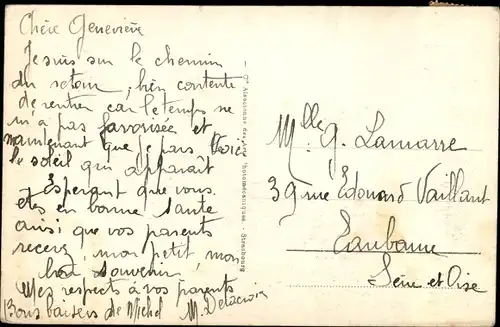 Chère Geneviève
Je suis sur le chemin
du retour, bien contente
de rentrer car le temps ne
m'a pas favorisée et
maintenant que je pars voici
le soleil qui apparait
Esperant que vous
êtes en bonne santé
ainsi que vos parents
recevez, mon petit, mon
bon souvenir.
Mes respects à vos parents
Bons baisers de Michel M. Delacroix
Cie Alsacienne des Arts Photomécaniques - Strasbourg
Mlle G. Lamarre
39 rue Edouard Vaillant
Eaubonne
Seine et Oise